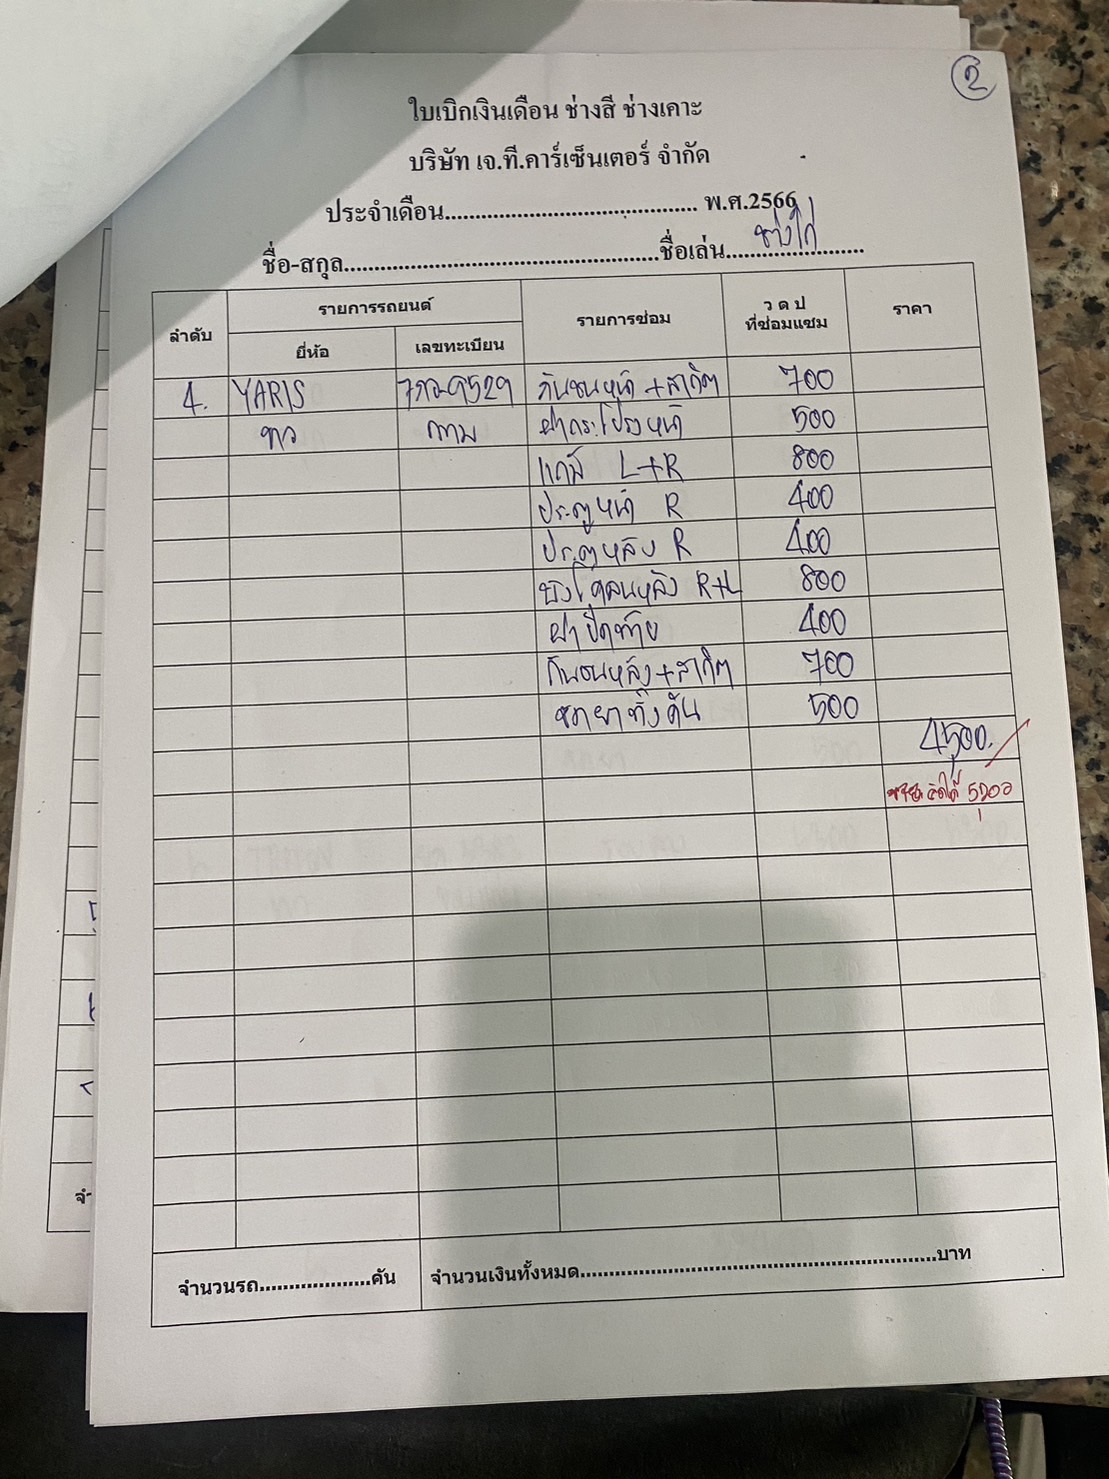 ๒
ใบเบิกเงินเดือน ช่างสี ช่างเคาะ
บริษัท เจ.ที.คาร์เซ็นเตอร์ จำกัด
ประจำเดือน.......................................... พ.ศ.2566
ชื่อ-สกุล....................................................ชื่อเล่น.......................
ช่างไก่
ลำดับ รายการรถยนต์ รายการซ่อม ว ด ป ที่ซ่อมแซม ราคา
ยี่ห้อ เลขทะเบียน
4. YARIS 7กอ9529 กันชนหน้า+สเกิต 700
ขาว ฝากระโปรงหน้า 500
แก้ม L+R 800
ประตูหน้า R 400
ประตูหลัง R 400
บังโคลนหลัง R+L 800
ฝาปิดท้าย 400
กันชนหลัง+สเกิต 700
ทั้งคัน 500
4500.
5200
จำนวนรถ...................คัน จำนวนเงินทั้งหมด..............................................................บาท